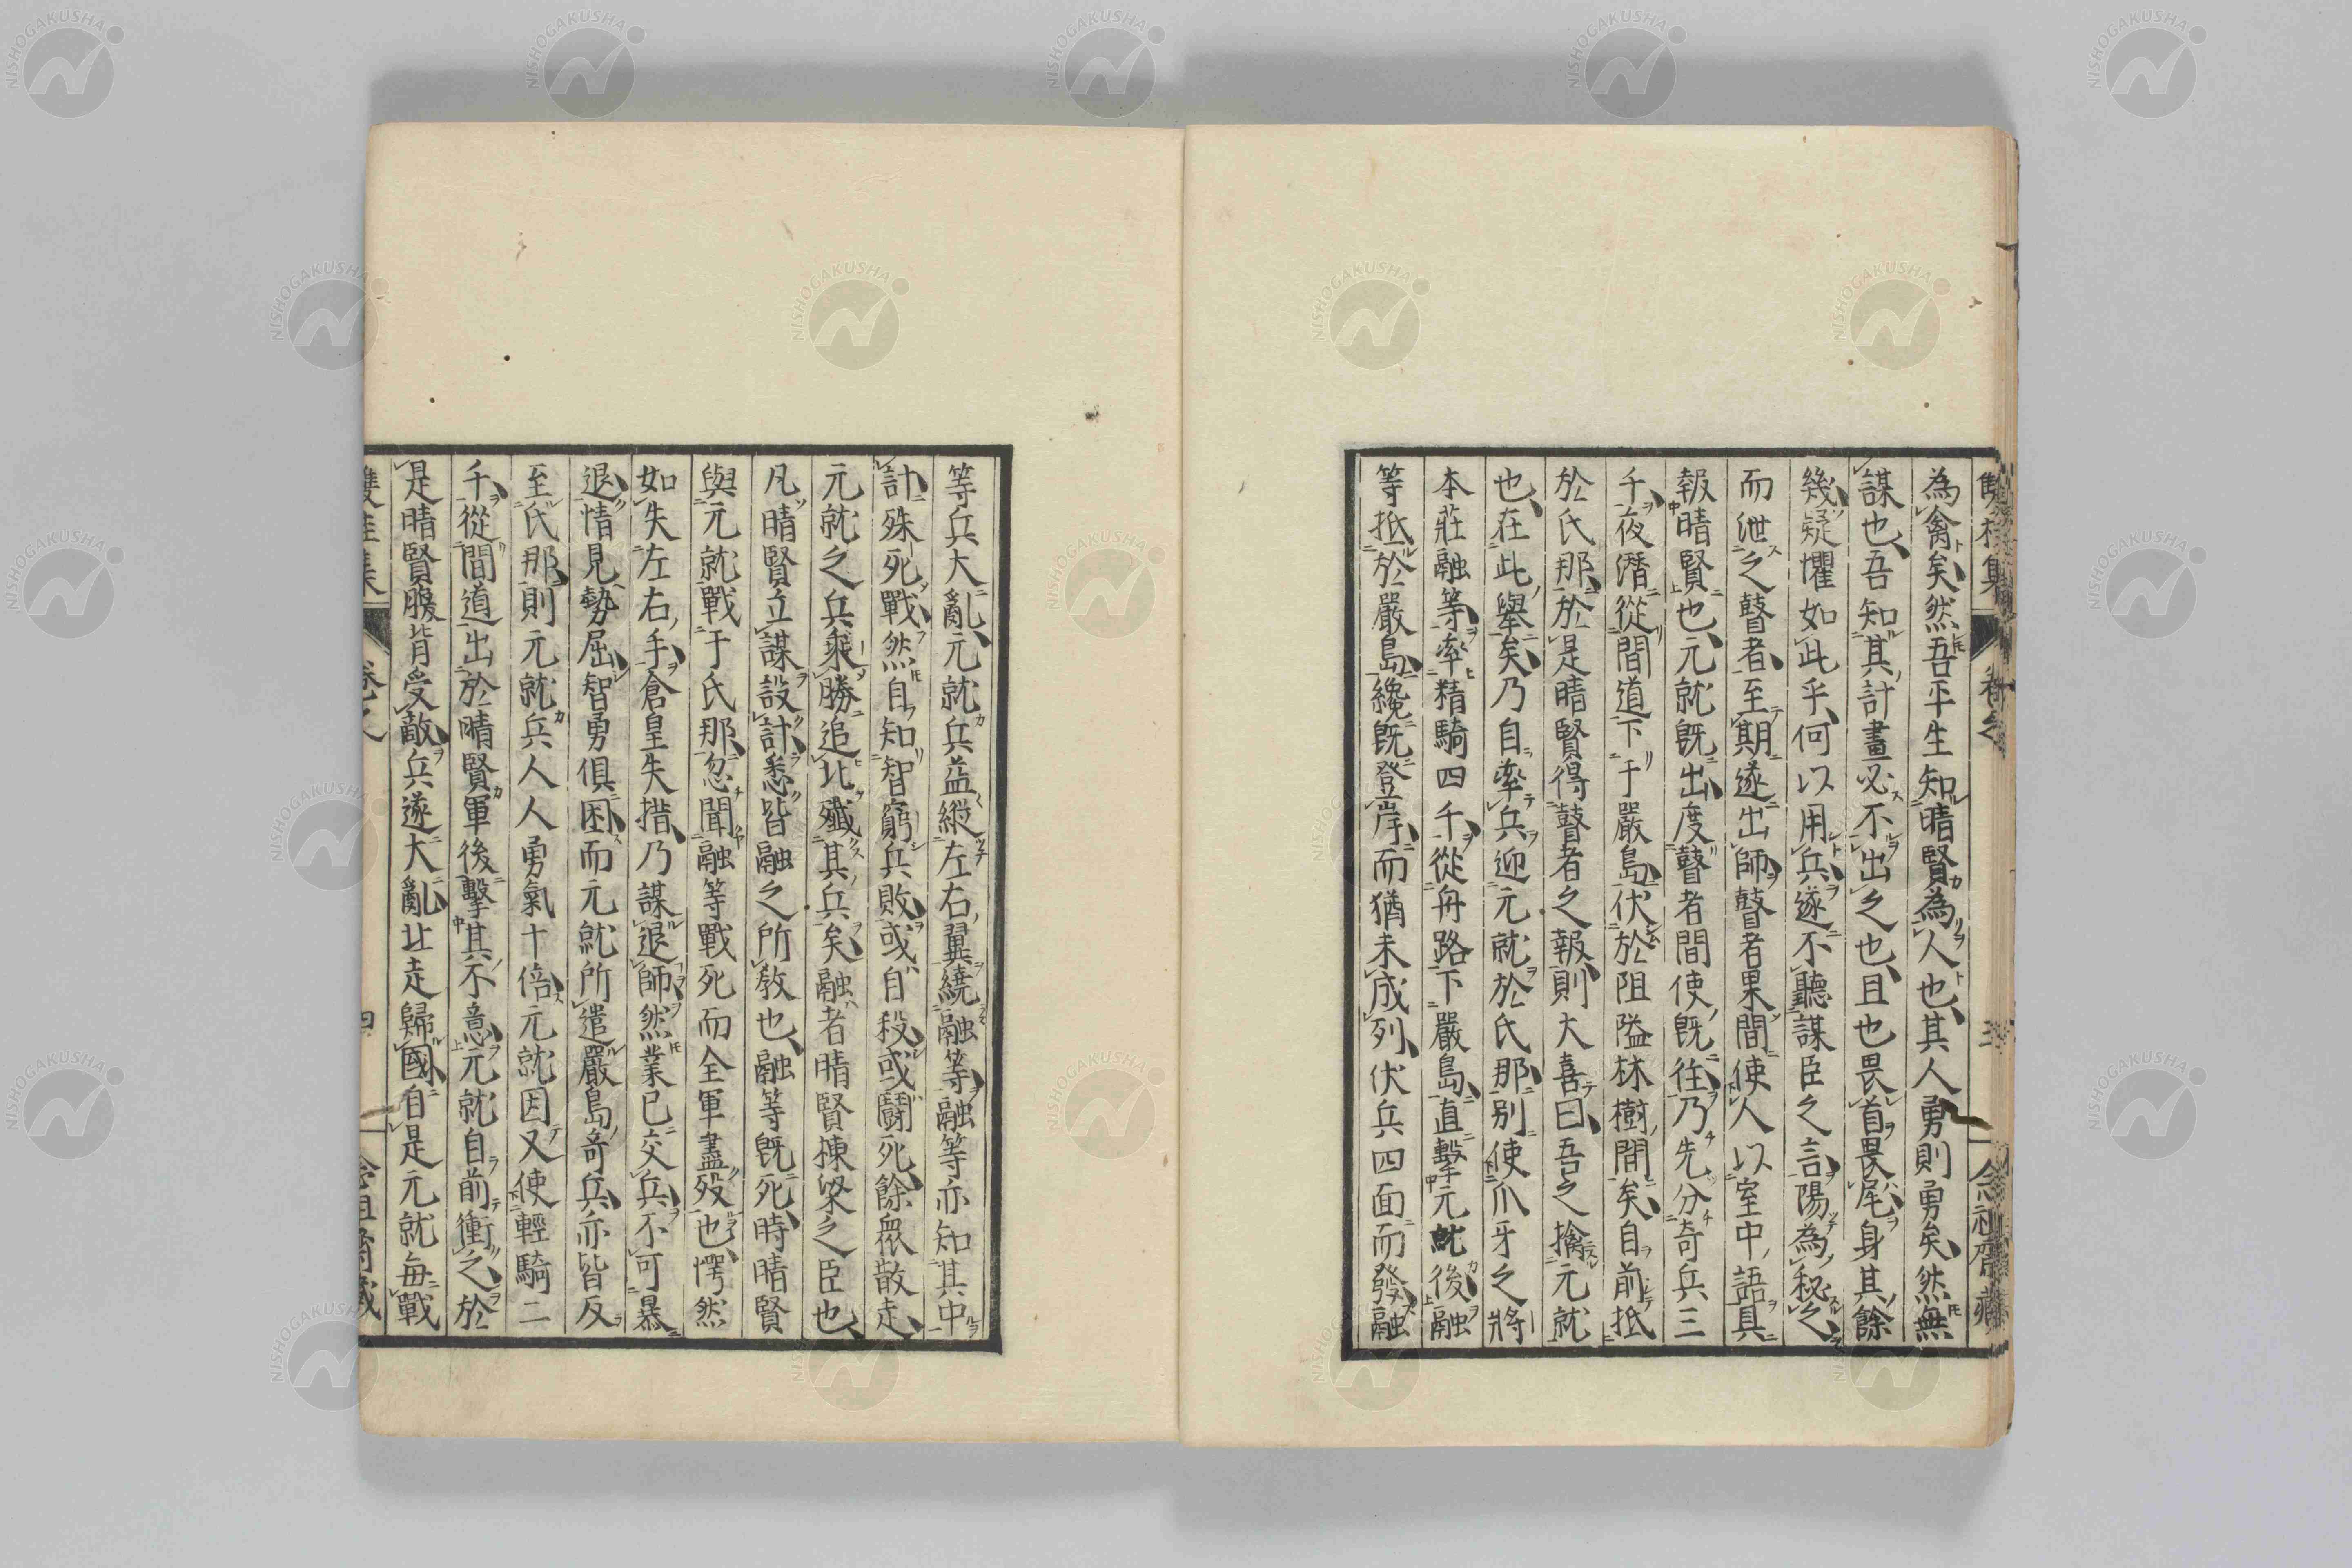 雙桂集 卷之 三 念祖齋藏
為禽矣然吾平生知晴賢為人也其人勇則勇矣然無
謀也吾知其計畫必不出之也且也畏首畏尾身其餘
幾疑懼如此乎何以用兵遂不聽謀臣之言陽為秘之
而泄之瞽者至期遂出師瞽者果間使人以室中語具
報晴賢也元就既出度瞽者間使既往乃先分奇兵三
千夜潛從間道下于嚴島伏於阻隘林樹間矣自前抵
於氏那於是晴賢得瞽者之報則大喜曰吾之擒元就
也在此舉矣乃自率兵迎元就於氏那別使爪牙之將
本莊融等率精騎四千從舟路下嚴島直擊元就後融
等抵於嚴島纔既登岸而猶未成列伏兵四面而發融
等兵大亂元就兵益縱左右翼繞融等融等亦知其中
計殊死戰然自知智窮兵敗或自殺或鬪死餘眾散走
元就之兵乘勝追北殲其兵矣融者晴賢棟梁之臣也
凡晴賢立謀設計悉皆融之所教也融等既死時晴賢
與元就戰于氏那忽聞融等戰死而全軍盡歿也愕然
如失左右手倉皇失措乃謀退師然業已交兵不可暴
退情見勢屈智勇俱困而元就所遣嚴島奇兵亦皆反
至氏那則元就兵人人勇氣十倍元就因又使輕騎二
千從間道出於晴賢軍後擊其不意元就自前衝之於
是晴賢腹背受敵兵遂大亂北走歸國自是元就每戰
雙桂集 卷之 四 念祖齋藏